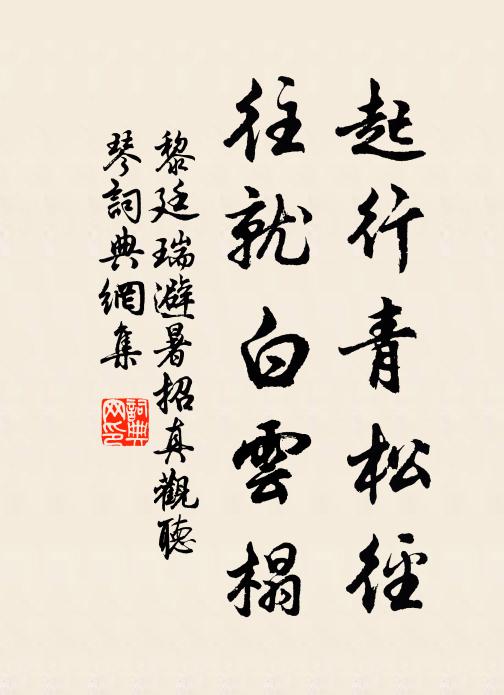 起行青松徑
往就白雲榻
黎廷瑞避暑招真觀聽
琴詞典網集
詞典
網印